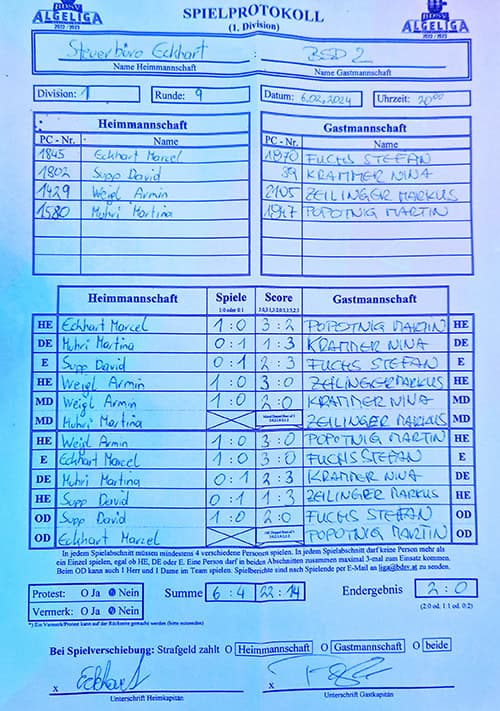 BDSV
ALGELIGA
2022 / 2023
SPIELPROTOKOLL
(1. Division)
BDSV
ALGELIGA
2022 / 2023
Steuerbüro Eckhart BSD 2
Name Heimmannschaft Name Gastmannschaft
Division: 1 Runde: 9 Datum: 6.02.2024 Uhrzeit: 20:00
Heimmannschaft Gastmannschaft
PC - Nr. Name PC - Nr. Name
1845 Eckhart Marcel 1970 FUCHS STEFAN
1802 Supp David 89 KRAMMER NINA
1429 Weigl Armin 2105 ZEILINGER MARKUS
1580 Muhri Martina 1947 POPOTNIG MARTIN
Heimmannschaft Spiele Score Gastmannschaft
1:0 oder 0:1
HE Eckhart Marcel 1 : 0 3 : 2 POPOTNIG MARTIN HE
DE Muhri Martina 0 : 1 1 : 3 KRAMMER NINA DE
E Supp David 0 : 1 2 : 3 FUCHS STEFAN E
HE Weigl Armin 1 : 0 3 : 0 ZEILINGER MARKUS HE
MD Weigl Armin 1 : 0 2 : 0 KRAMMER NINA MD
MD Muhri Martina ZEILINGER MARKUS MD
HE Weigl Armin 1 : 0 3 : 0 POPOTNIG MARTIN HE
E Eckhart Marcel 1 : 0 3 : 0 FUCHS STEFAN E
DE Muhri Martina 0 : 1 2 : 3 KRAMMER NINA DE
HE Supp David 0 : 1 1 : 3 ZEILINGER MARKUS HE
OD Supp David 1 : 0 2 : 0 FUCHS STEFAN OD
OD Eckhart Marcel POPOTNIG MARTIN OD
In jedem Spielabschnitt müssen mindestens 4 verschiedene Personen spielen. In jedem Spielabschnitt darf keine Person mehr als
ein Einzel spielen, egal ob HE, DE oder E. Eine Person darf in beiden Abschnitten zusammen maximal 3-mal zum Einsatz kommen.
Beim OD kann auch 1 Herr und 1 Dame im Team spielen. Spielberichte sind nach Spielende per E-Mail an liga@bdsv.at zu senden.
Protest: O Ja O Nein Summe 6 : 4 22 : 14 Endergebnis 2 : 0
Vermerk: O Ja O Nein (2:0 od. 1:1 od. 0:2)
*) Ein Vermerk/Protest kann auf der Rückseite gemacht werden (bitte ausmachen)
Bei Spielverschiebung: Strafgeld zahlt O Heimmannschaft O Gastmannschaft O beide
x Eckhart x
Unterschrift Heimkapitän Unterschrift Gastkapitän